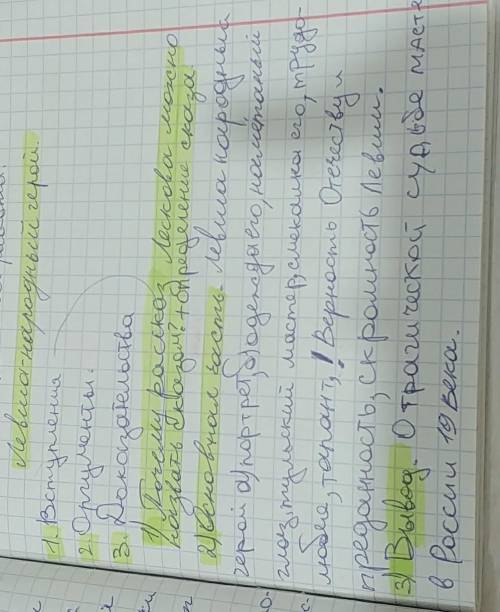 Левша-народный герой.
1. Вступление
2. Аргументы.
3. Доказательства
1) Почему рассказ Лескова можно
назвать сказом? + определение сказа.
2) Основная часть. Левша народный
герой а) портрет, б) одежда его,
глаз, тульский мастер, смекалка его, трудо-
любие, талант, ! Верность Отечеству и
преданность, скромность Левши.
3) Вывод. О трагической судьбе масте
в России 19 века.